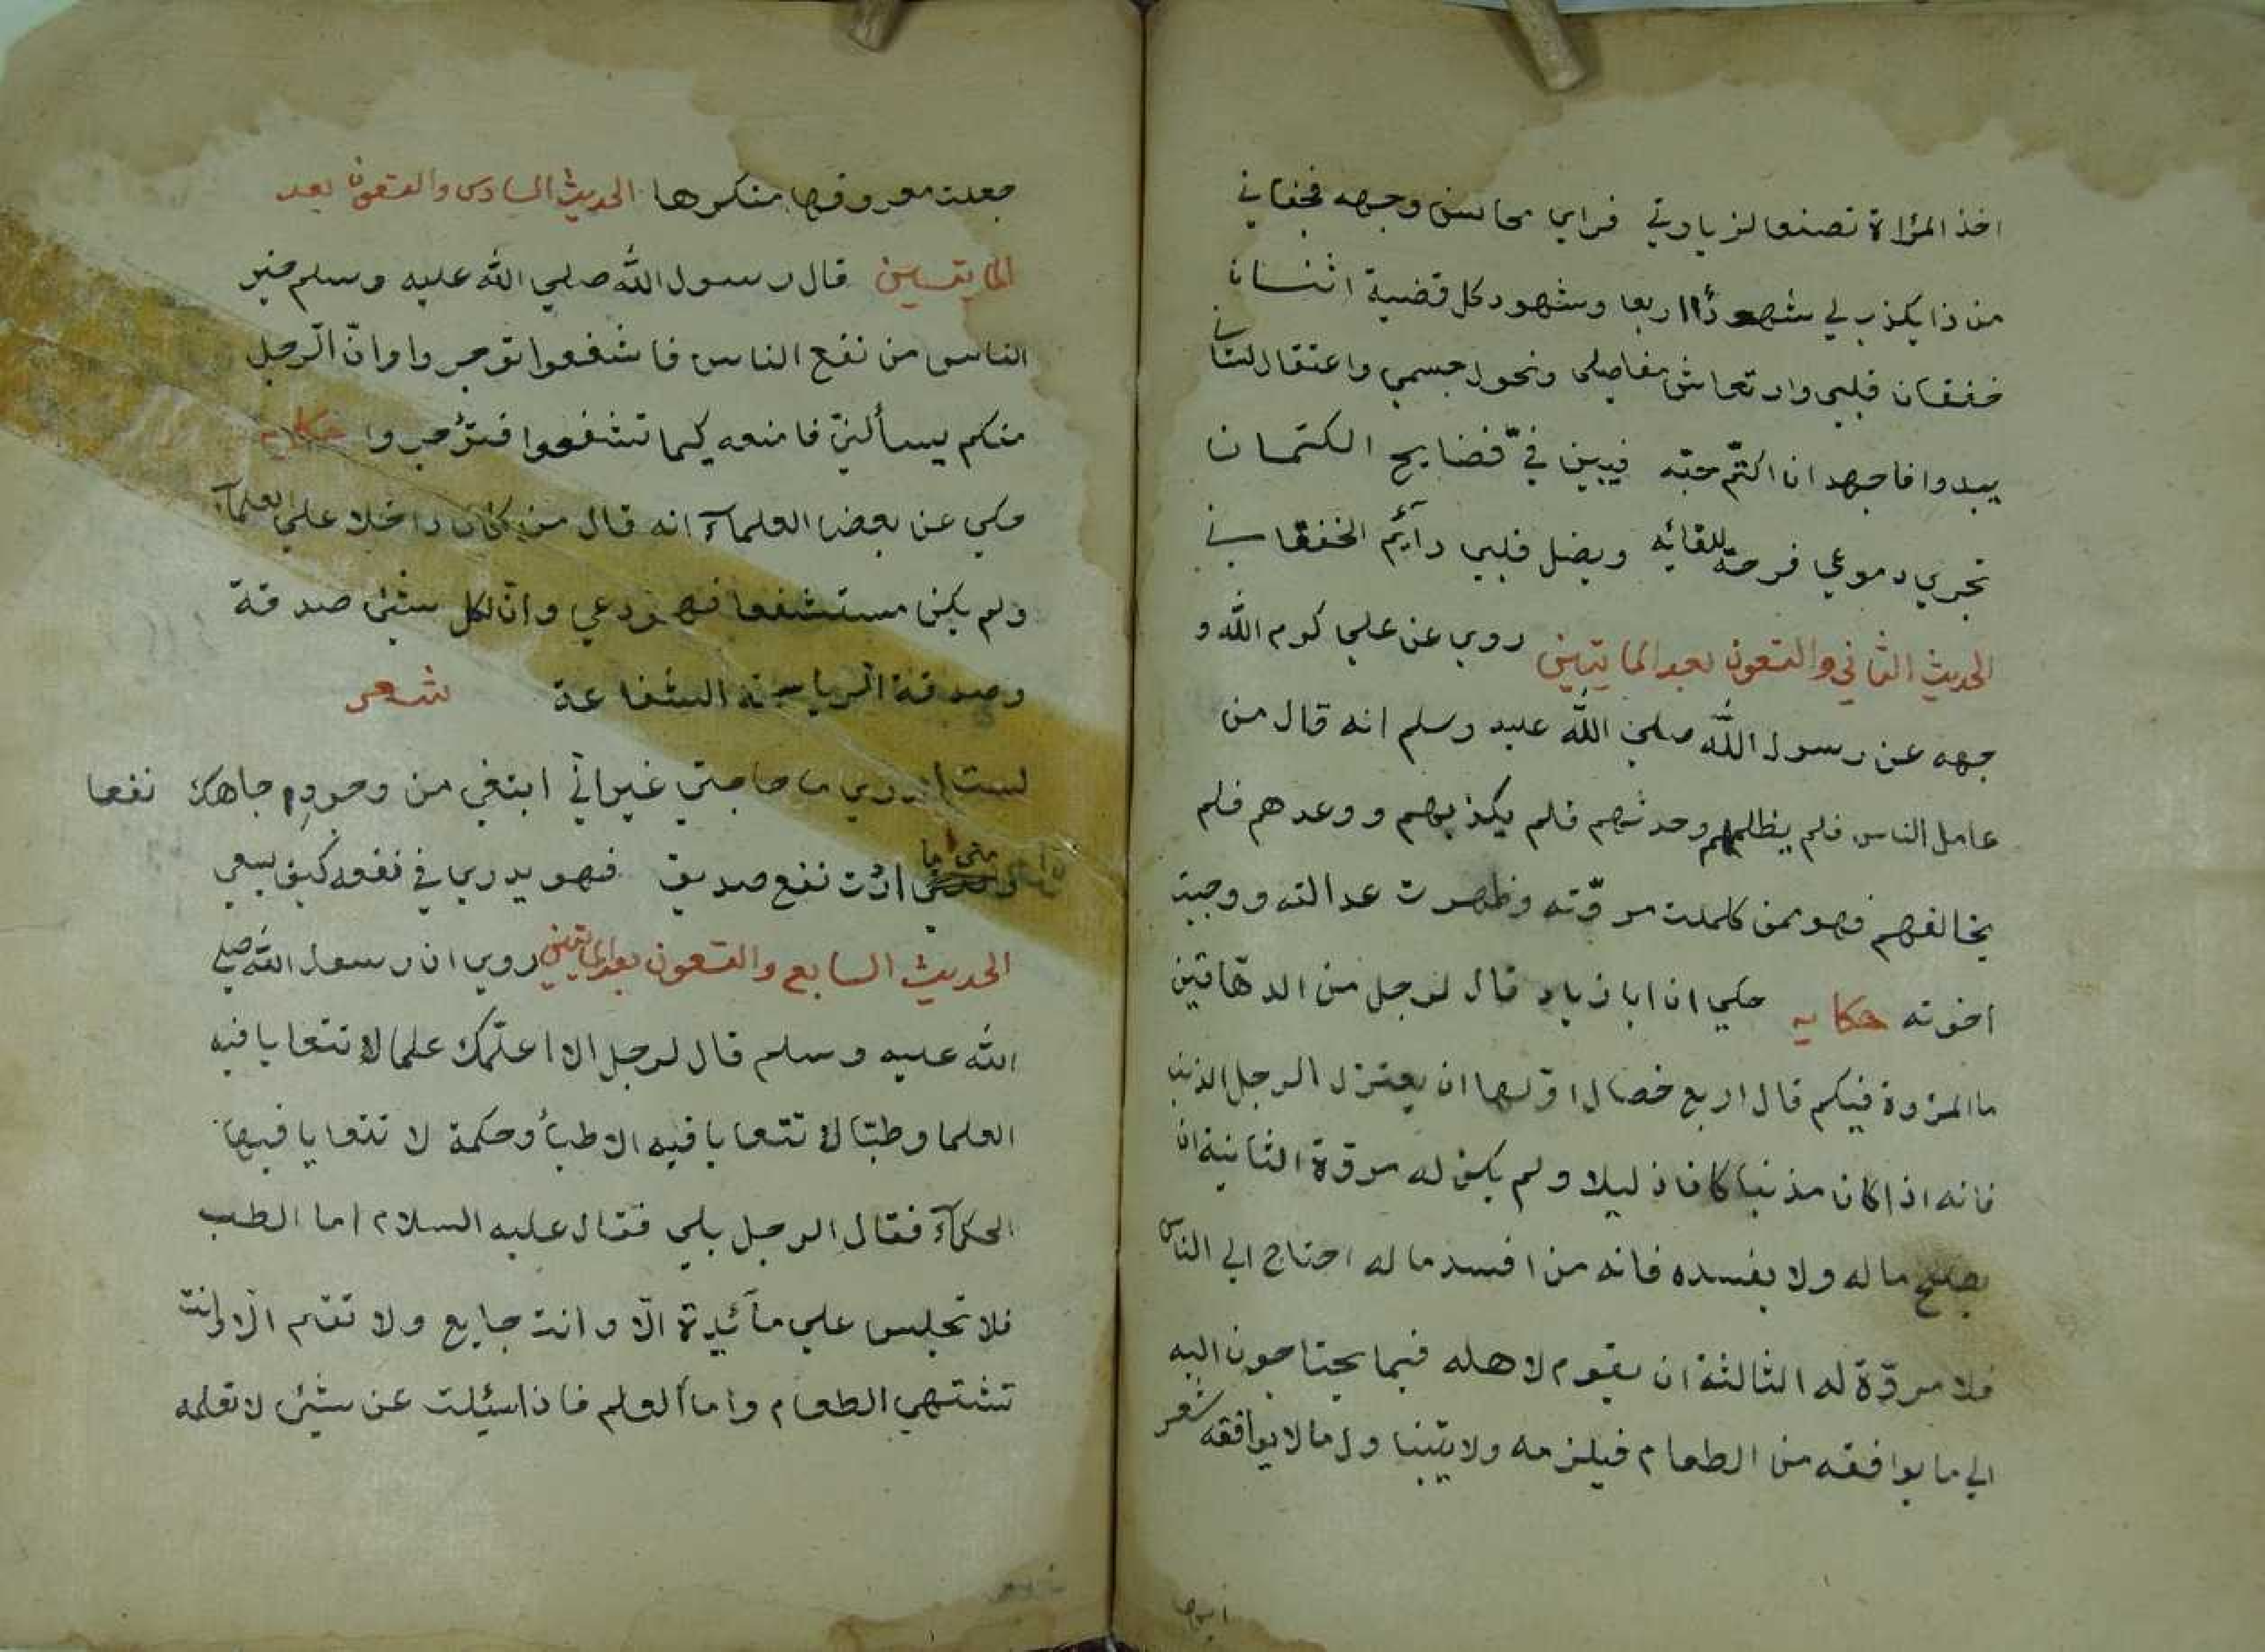 اخذ المرٔاة تصنعا لزيارتي فراي محاسن وجهه فجفاني
من ذا يكذب لي شهودٔا اربعا وشهود كل قضية اثنان
خفقان قلبي وارتعاش مفاصلي ونحول جسمي واعتقال لساني
يبدوا فاجهد ان اكتّم حبّه فيبين فيّ فضايح الكتمان
تجري دموعي فرحة للقائه ويضل قلبي دآئم الخفقاني
الحديث الثاني والتسعون بعد المايتين روي عن علي كرم الله و
جهه عن رسول الله صلي الله عليه وسلم انه قال من
عامل الناس فلم يظلمهم وحدثهم فلم يكذبهم ووعدهم فلم
يخالفهم فهو ممن كاملت مروّته وظهرت عدالته ووجبت
اخوته حكايه حكي ان ابا زياد قال لرجل من الدهّاقين
ما المرؤة فيكم قال اربع خصال اوّلها ان يعتزل الرجل الذنب
فانه اذا كان مذنبا كان ذليلا ولم يكن له مروّة الثانية ان
يصلح ماله ولا يفسده فانه من افسد ماله احتاج الي الناس
فلا مروّة له الثالثة ان يقوم لاهله فيما يحتاجون اليه
الي ما يوافقه من الطعام فيلزمه ولا يتينا ول ما لا يوافقه شعر
جعلت معروفها منكرها الحديث السادس والتسعون بعد
المايتين قال رسول الله صلي الله عليه وسلم خير
الناس من نفع الناس فاشفعوا توجروا وانّ الرّجل
منكم يسألنيّ فامنعه كيما تشفعوا فتؤجروا حكايه
حكي عن بعض العلمآء انه قال من كان داخلا علي العلمآء
ولم يكن مستشفعا فهو دعي وانّ لكل شئى صدقة
وصدقة الرياسة الشفاعة شعر
لست ادري ما حاجتي غير انّي ابتغي من وجوده جاهك نفعا
متي ما اردت نفع صديق فهو يدري في نفعه كيف يسعي
الحديث السابع والتسعون بعد المايتين روي ان رسول الله صلي
الله عليه وسلم قال لرجل الا اعلّمك علما لا تتعايا فيه
العلما وطبّا لا تتعايا فيه الاطبأ وحكمة لا تتعايا فيها
الحكمآء فقال الرجل بلي فقال عليه السلام اما الطب
فلا تجلس علي مآئيدة الّا وانت جايع ولا تقم الّا وانت
تشتهي الطعام واما العلم فاذا سئيلت عن شئى لا تعلمه